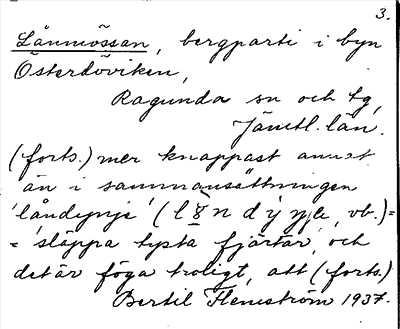 3.
Lånmössan, bergparti i byn
Österdöviken,
Ragunda sn och tg,
Jämtl. län.
(forts.) mer knappast annat
än i sammansättningen
'låndynje' (
vb.)=
= 'släppa tysta fjärtar, och
det är föga troligt, att (forts.)
Bertil Flemström 1937.